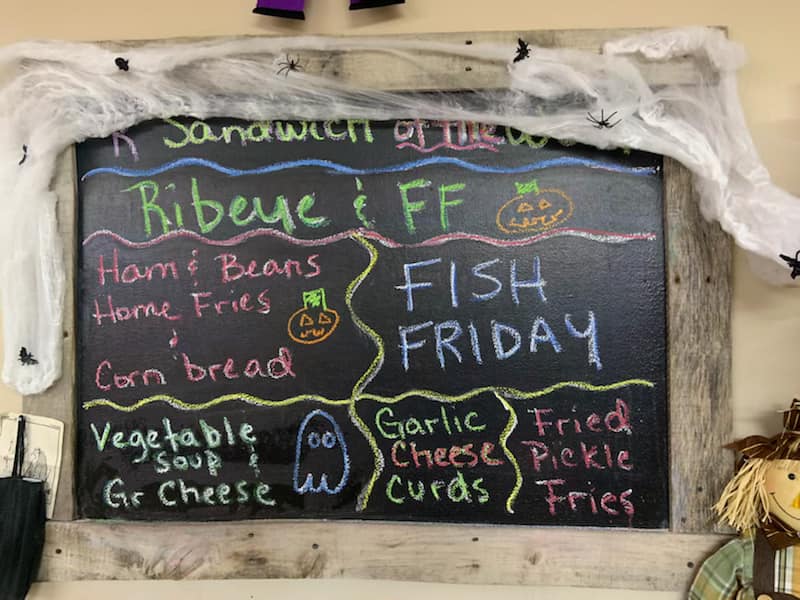 Sandwich of the
Ribeye & FF
Ham & Beans
Home Fries
&
Corn bread
FISH
FRIDAY
Vegetable
Soup &
Gr Cheese
Garlic
Cheese
Curds
Fried
Pickle
Fries